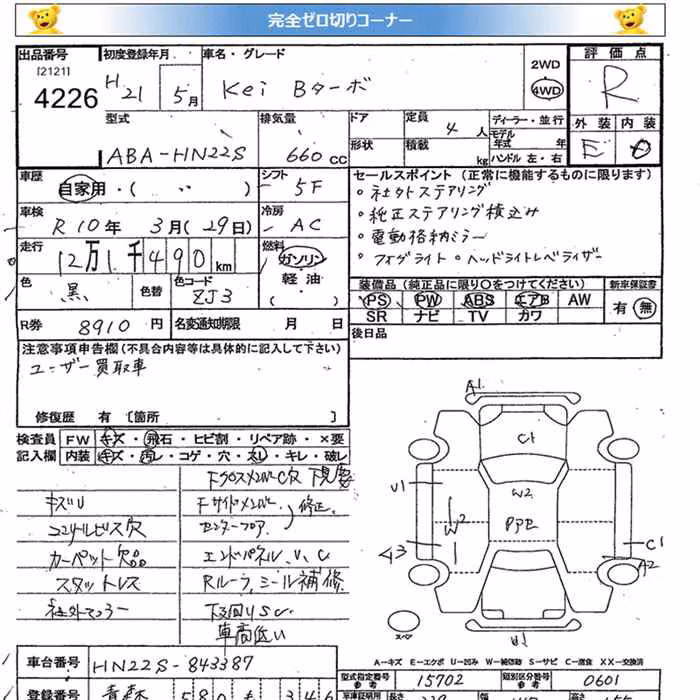 完全ゼロ切りコーナー
出品番号 初度登録年月 車名・グレード 評価点
[2121]
4226 H21 5月 Kei Bターボ 2WD 4WD R
型式 排気量 ドア 定員 ディーラー・並行 外装 内装
モデル 年式 年
ABA-HN22S 660cc 形状 積載 4人 kg ハンドル 左・右 E
車歴 シフト セールスポイント(正常に機能するものに限ります)
自家用・( 〃 ) 5F
。社外ステアリング
車検 冷房 。純正ステアリング積込み
R10年 3月(29日) AC 。電動格納ミラー
走行 燃料 。フォグライト 。ヘッドライトレベライザー
12万1千490km ガソリン
軽油
色 色替 色コード 装備品(純正品に限り○をつけてください) 新車保証書
黒 ZJ3 ( ) PS PW ABS エアB AW 有 無
SR ナビ TV カワ
R券 8910円 名変通知期限 月 日 後日品
注意事項申告欄(不具合内容等は具体的に記入して下さい)
ユーザー買取車
修復歴 有 [箇所 ]
検査員 FW キズ・飛石・ヒビ割・リペア跡・×要
記入欄 内装 キズ・汚レ・コゲ・穴・スレ・キレ・破レ
キズU
Fサイドメンバー 修正
センターフロア
カーペット欠品 エンドパネルU、C
スタットレス Rルーフ、シール補修
下回りSC
車高低い
A1
C1
U1
W2
W2
PPE
C1
A2
U1
スペア
A-キズ E-エクボ U-凹み S-サビ C-腐食 XX-交換済
車台番号 HN22S-843387
型式指定番号 参考 15702 類別区分番号 参考 0601
登録番号 青森 580 346